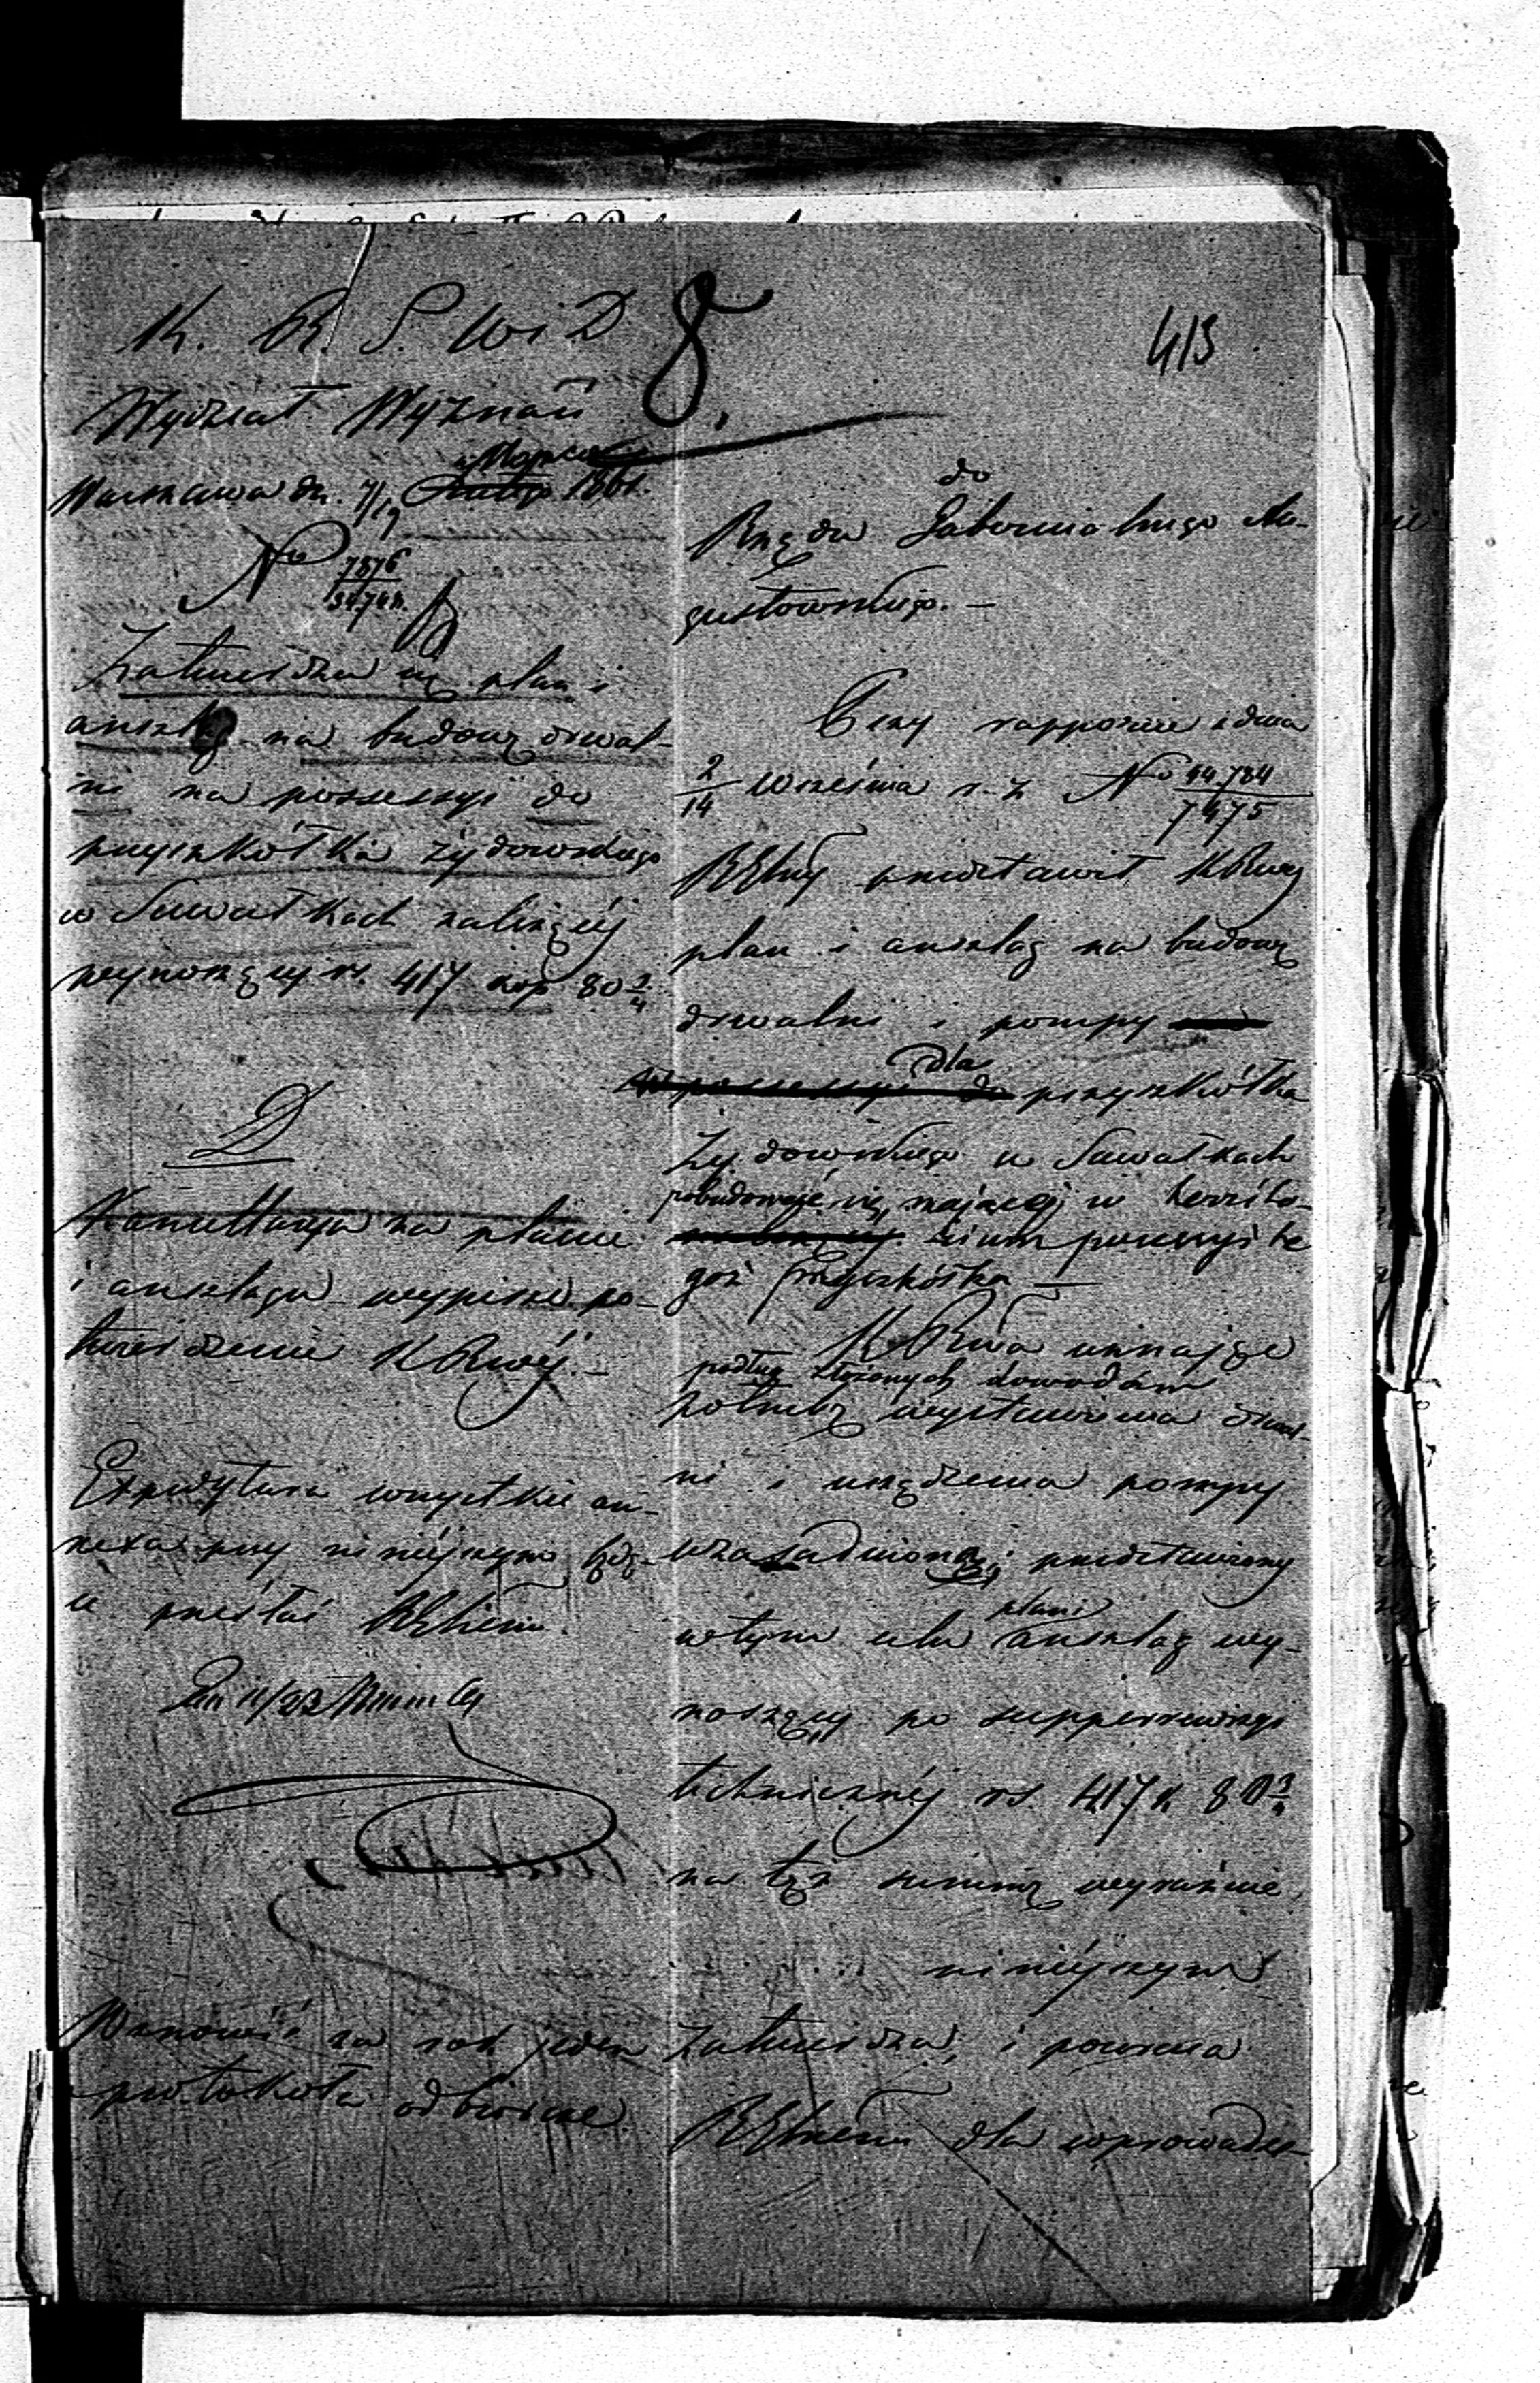 K. R. S. W i D
8.
413
Wydział Wyznań
Marca
Warszawa dn. 7/19 Lutego 1861.
No 7876
Zatwierdza się plan i
anszlag na budowę drwal-
ni na possessyi do
przyszkółka żydowskiego
w Suwałkach należącej
wynoszący rs. 417 kop 80 3/4
D
na planie
i anszlagu wypisze po-
twierdzenie KRwéj. –
Expedytura wszystkie an-
nexa przy niniéjszym będą-
ce prześłać RGnemu.
11/23
Wznowić za rok jeden
protokoła odbiorcze
do
Rządu Gubernialnego Au-
gustowskiego. –
Przy rapporcie z dnia
2/14 Września r. z. No 44.784/7475
RGlny przedstawił KRwej
plan i anszlag na budowę
drwalni i pompy
possessyi do dla przyszkółka
żydowskiego w Suwałkach
pobudować się mającej w territo-
rium possessyi te
goż przyszkółka —
KRwa uznając
podług złożonych dowodów
potrzebę wystawienia drwal-
ni i urządzenia pompy
uzasadnioną, przedstawiony
w tym celu plan i anszlag wy-
noszący po superrewizyi
technicznéj rs. 417 k. 80 3/4
na tęż summę wyraźnie
niniéjszym
zatwierdza, i powraca
RGlnemu dla wprowadze-